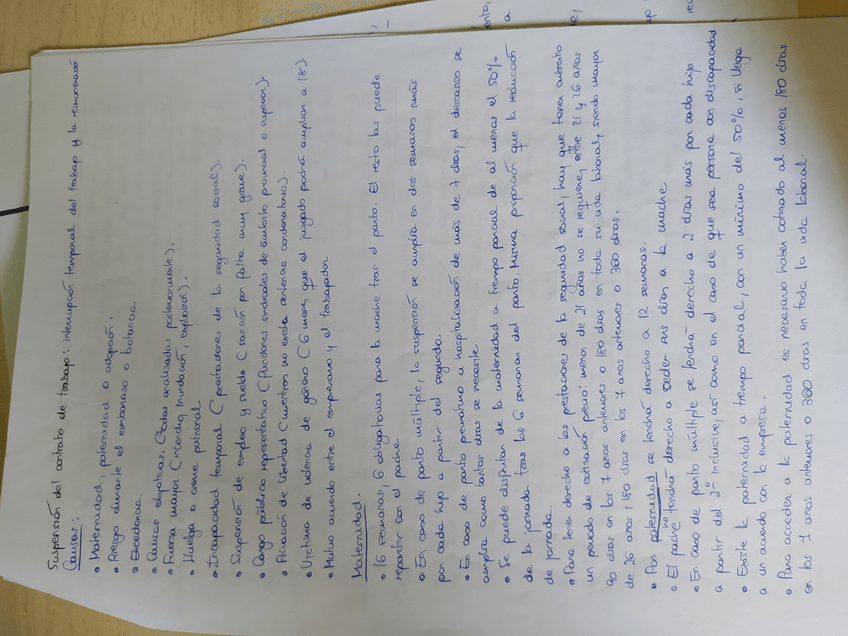 Suspensión del contrato de trabajo: interrupción temporal del trabajo y la remuneración
Causas:
• Maternidad, paternidad o adopción.
• Riesgo durante el embarazo o lactancia.
• Excedencia.
• Causas objetivas, (todas analizadas posteriormente).
• Fuerza mayor (incendio, inundación, explosión).
• Huelga o cierre patronal
• Incapacidad temporal (prestaciones de la seguridad social).
• Suspensión de empleo y sueldo (sanción por falta muy grave).
• Cargo público representativo (funciones sindicales de ámbito provincial o superior).
• Privación de libertad (mientras no exista sentencia condenatoria).
• Víctima de violencia de género (6 meses, que el juzgado podrá ampliar a 18).
• Mutuo acuerdo entre el empresario y el trabajador
Maternidad.
• 16 semanas, 6 obligatorias para la madre tras el parto. El resto las puede
repartir con el padre.
• En caso de parto múltiple, la suspensión se amplía en dos semanas más
por cada hijo a partir del segundo.
• En caso de parto prematuro u hospitalización de más de 7 días, el descanso se
amplía como tantos días se necesite
• Se puede disfrutar de la maternidad a tiempo parcial de al menos el 50%
de la jornada tras las 6 semanas del parto. Misma proporción que la reducción
de jornada.
• Para tener derecho a las prestaciones de la seguridad social, hay que tener cubierto
un periodo de cotización previo: menor de 21 años no se requiere, entre 21 y 26 años
90 días en los 7 años anteriores o 180 días en toda su vida laboral, siendo mayor
de 26 años 180 días en los 7 años anteriores o 360 días.
• Por paternidad se tendrá derecho a 12 semanas.
• El padre no tendrá derecho a ceder sus días a la madre
• En caso de parto múltiple se tendrá derecho a 2 días más por cada hijo
a partir del 2º inclusive, así como en el caso de que sea persona con discapacidad
• Existe la paternidad a tiempo parcial, con un mínimo del 50%, si llega
a un acuerdo con la empresa.
• Para acceder a la paternidad es necesario haber cotizado al menos 180 días
en los 7 años anteriores o 360 días en toda la vida laboral.